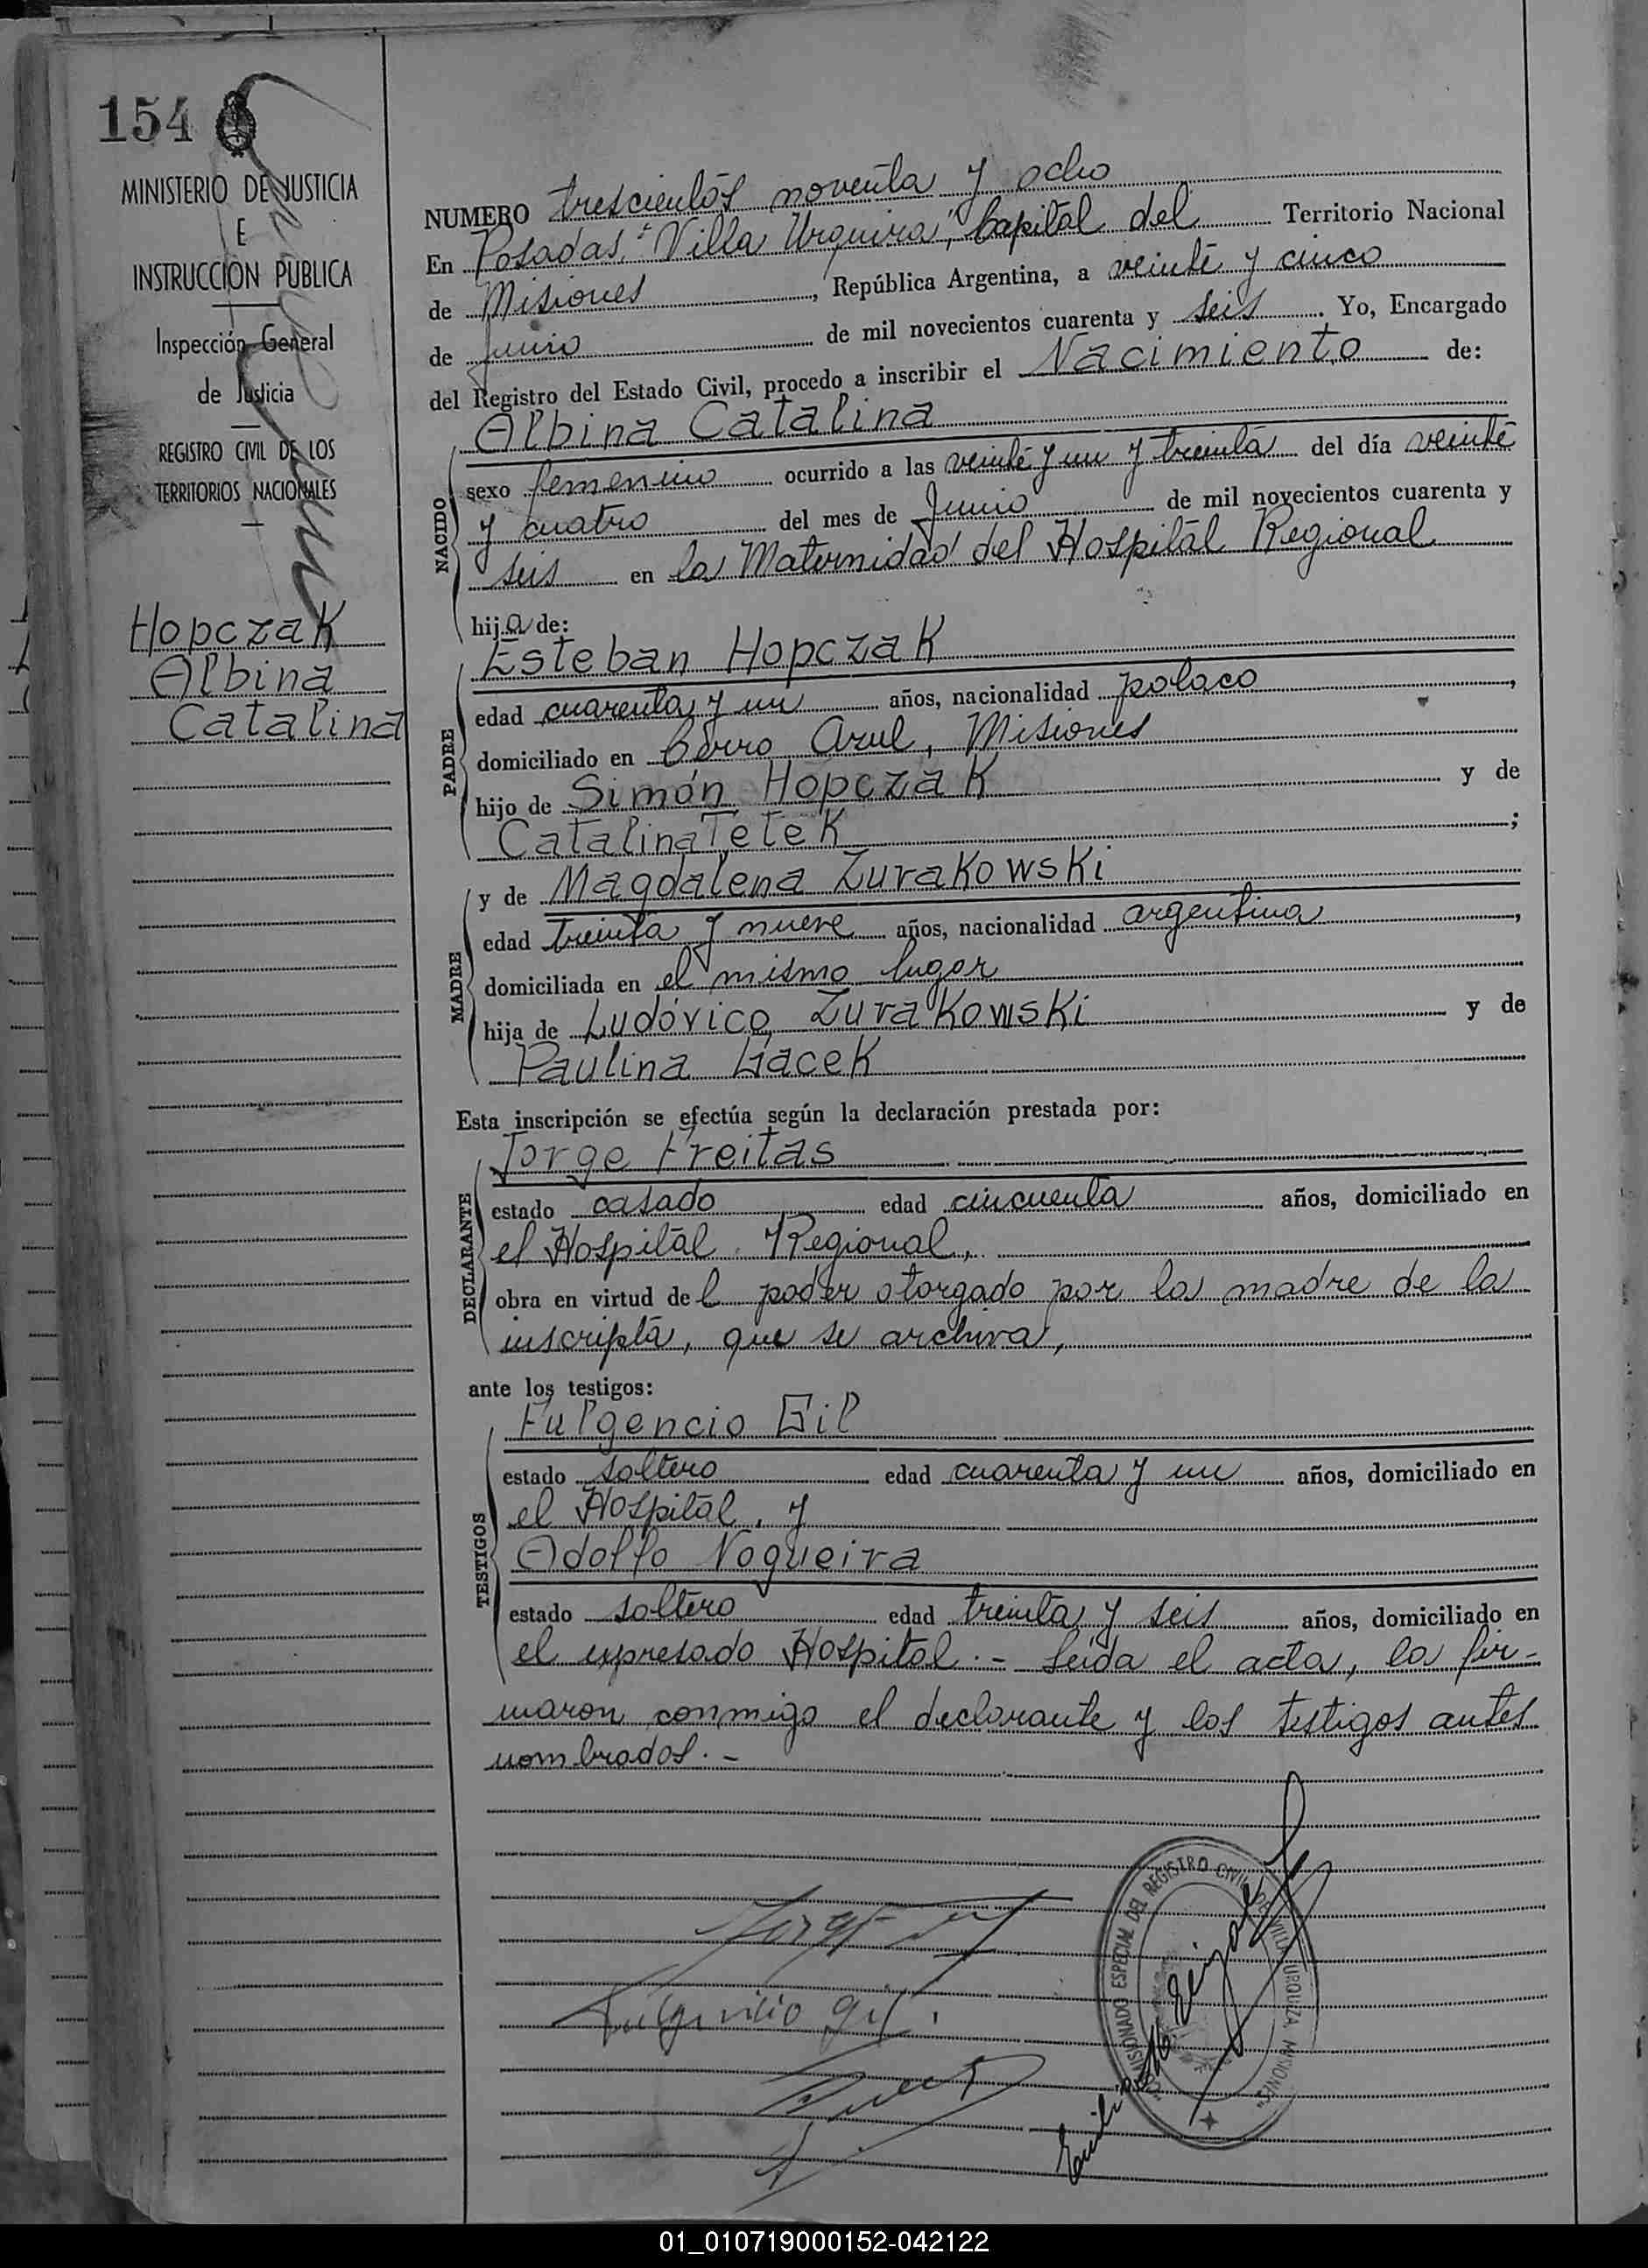 154
MINISTERIO DE JUSTICIA
E
INSTRUCCION PUBLICA
Inspección General
de Justicia
REGISTRO CIVIL DE LOS
TERRITORIOS NACIONALES
Hopczak
Albina
Catalina
NUMERO trescientos noventa y ocho
En Posadas, "Villa Urquiza", Capital del Territorio Nacional
de Misiones, República Argentina, a veinte y cinco
de junio de mil novecientos cuarenta y seis. Yo, Encargado
del Registro del Estado Civil, procedo a inscribir el Nacimiento de:
NACIDO
Albina Catalina
sexo femenino ocurrido a las veinte y un y treinta del día veinte
y cuatro del mes de Junio de mil novecientos cuarenta y
seis en la Maternidad del Hospital Regional
hija de:
PADRE
Esteban Hopczak
edad cuarenta y un años, nacionalidad polaco,
domiciliado en Cerro Azul, Misiones
hijo de Simón Hopczak y de
Catalina Tetek;
MADRE
y de Magdalena Zurakowski
edad treinta y nueve años, nacionalidad argentina,
domiciliada en el mismo lugar
hija de Ludóvico Zurakowski y de
Paulina Gacek
Esta inscripción se efectúa según la declaración prestada por:
DECLARANTE
Jorge Freitas
estado casado edad cincuenta años, domiciliado en
el Hospital Regional,
obra en virtud del poder otorgado por la madre de la
inscripta, que se archiva,
ante los testigos:
TESTIGOS
Fulgencio Gil
estado soltero edad cuarenta y un años, domiciliado en
el Hospital, y
Adolfo Nogueira
estado soltero edad treinta y seis años, domiciliado en
el expresado Hospital.- Leída el acta, la fir-
maron conmigo el declarante y los testigos antes
nombrados.-
Jorge
Fulgencio Gil.
COMISIONADO ESPECIAL DEL REGISTRO CIVIL DE VILLA URQUIZA, MISIONES
01_010719000152-042122